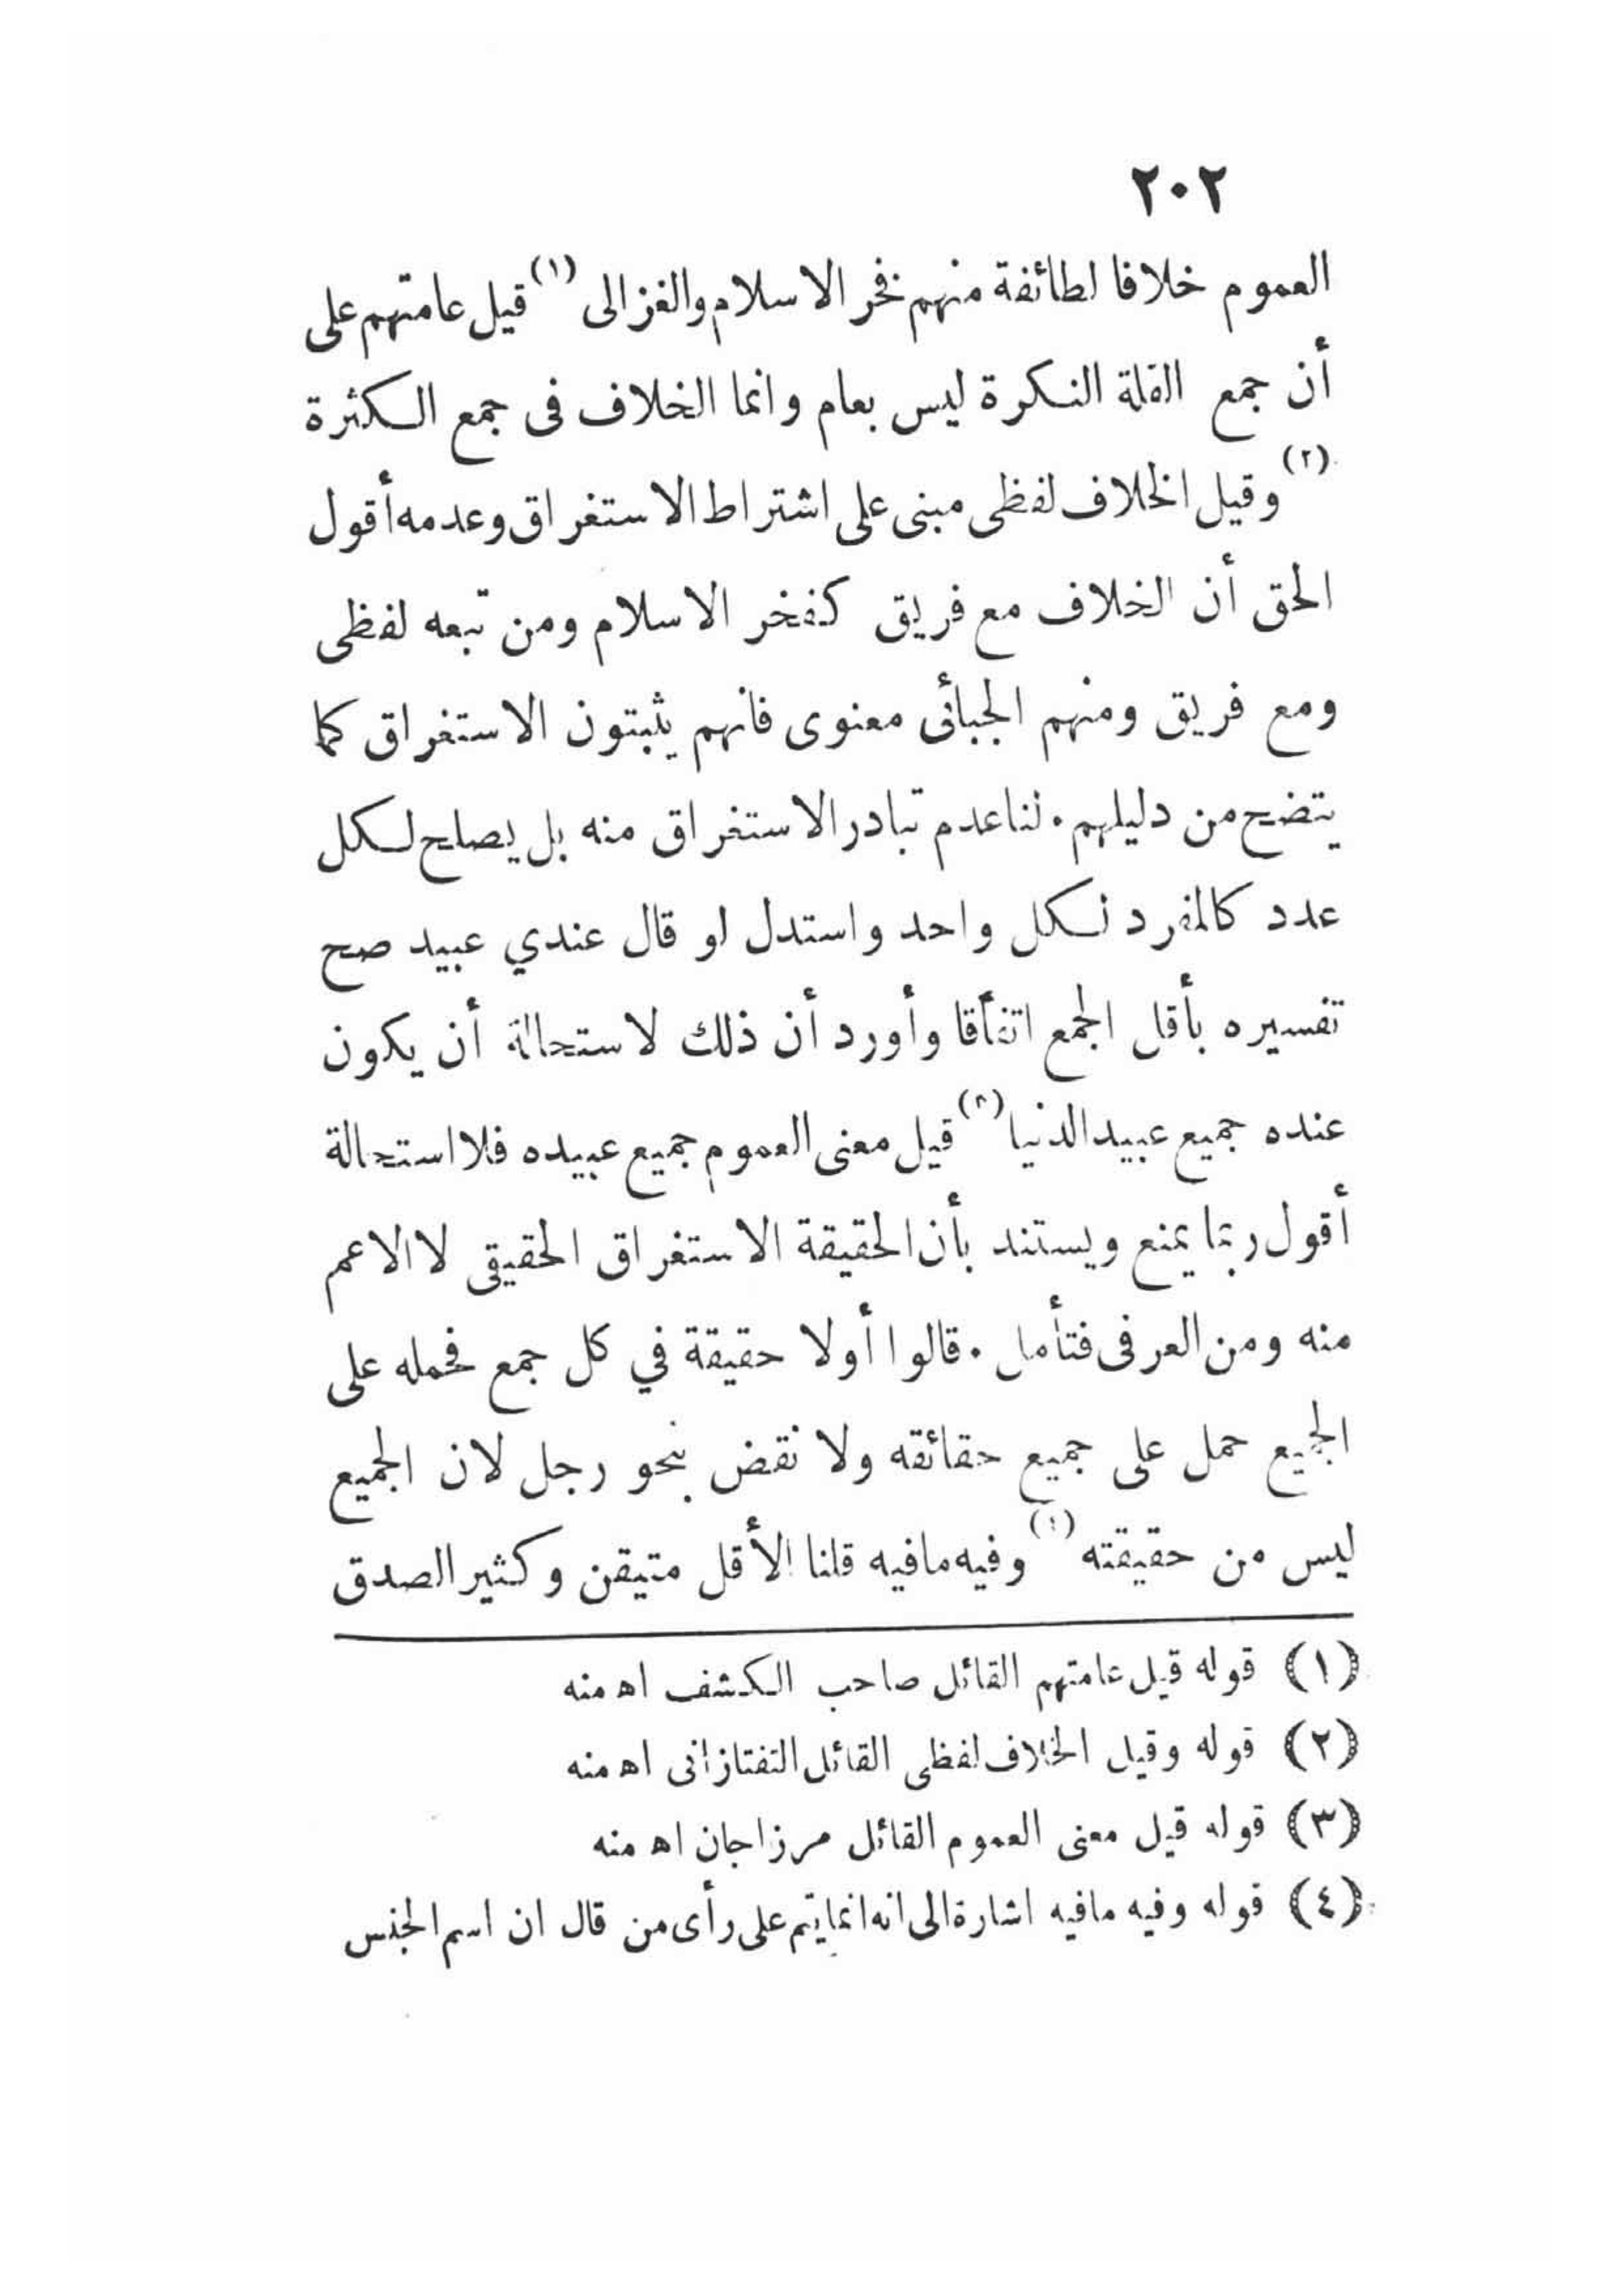 ٢٠٢
العموم خلافا لطائفة منهم فخر الاسلام والغزالى (١) قيل عامتهم على
أن جمع القلة النكرة ليس بعام وانما الخلاف فى جمع الكثرة
(٢) وقيل الخلاف لفظى مبنى على اشتراط الاستغراق وعدمه أقول
الحق أن الخلاف مع فريق كفخر الاسلام ومن تبعه لفظى
ومع فريق ومنهم الجبائى معنوى فانهم يثبتون الاستغراق كما
يتضح من دليلهم . لنا عدم تبادر الاستغراق منه بل يصلح لكل
عدد كالمفرد لكل واحد واستدل لو قال عندي عبيد صح
تفسيره بأقل الجمع اتفاقا وأورد أن ذلك لاستحالة أن يكون
عنده جميع عبيد الدنيا (٣) قيل معنى العموم جميع عبيده فلا استحالة
أقول ربما يمنع ويستند بأن الحقيقة الاستغراق الحقيقى لا الاعم
منه ومن العرفى فتأمل . قالوا أولا حقيقة في كل جمع فحمله على
الجميع حمل على جميع حقائقه ولا نقض بنحو رجل لان الجميع
ليس من حقيقته (٤) وفيه مافيه قلنا الأقل متيقن وكثير الصدق
(١) قوله قيل عامتهم القائل صاحب الكشف اه منه
(٢) قوله وقيل الخلاف لفظى القائل التفتازانى اه منه
(٣) قوله قيل معنى العموم القائل مرزاجان اه منه
(٤) قوله وفيه مافيه اشارة الى انه انما يتم على رأى من قال ان اسم الجنس